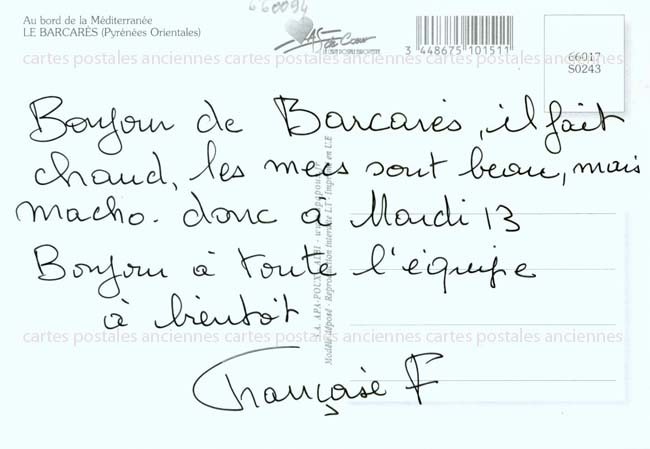 Au bord de la Méditerranée
LE BARCARÈS (Pyrénées Orientales)
660094
As de Cœur
LA CARTE POSTALE EUROPEENNE
3 448675 101511
66017
S0243
cartes postales anciennes cartes postales anciennes cartes postales anciennes
Bonjour de Barcarès, il fait
chaud, les mecs sont beau, mais
macho. donc à Mardi 13
Bonjour à toute l'équipe
à bientôt
Françoise F
S.A. APA-POUX - ALBI - www.apapoux.fr
Modèle déposé - Reproduction Interdite LT - Imprimé en U.E
cartes postales anciennes cartes postales anciennes cartes postales anciennes